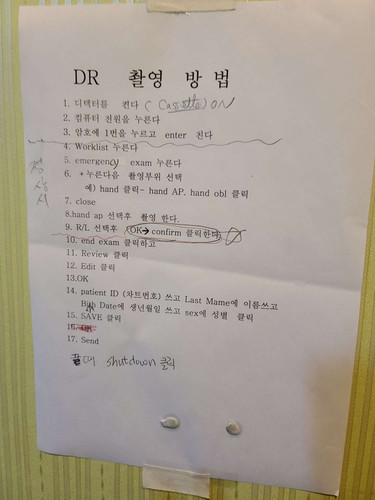 DR 촬영 방법
1. 디텍터를 켠다 ( Cassette) ON
2. 컴퓨터 전원을 누른다
3. 암호에 1번을 누르고 enter 친다
4. Worklist 누른다
5. emergency exam 누른다
6. +누른다음 촬영부위 선택
예) hand 클릭- hand AP. hand obl 클릭
7. close
8.hand ap 선택후 촬영 한다.
9. R/L 선택후 OK→ confirm 클릭한다
10. end exam 클릭하고
11. Review 클릭
12. Edit 클릭
13.OK
14. patient ID (차트번호) 쓰고 Last Mame에 이름쓰고
Birth Date에 생년월일 쓰고 sex에 성별 클릭
15. SAVE 클릭
16. OK
17. Send
끌때 shutdown 클릭
정상시